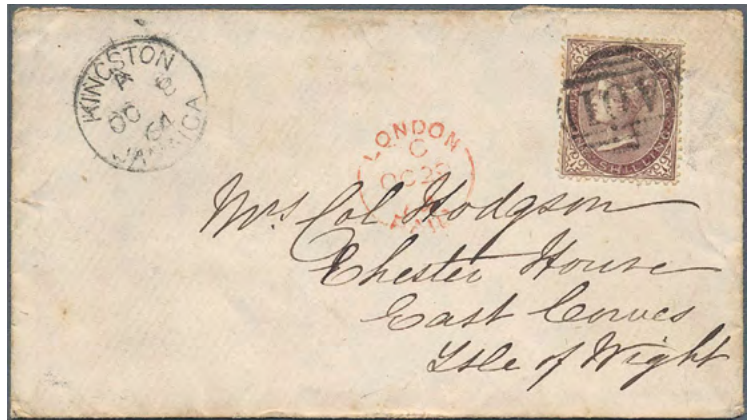 KINGSTON
A
OC
JAMAICA
LONDON
C
OC 29
PAID
A01
SHILLING
Mrs Col Hodgson
Chester House
East Cowes
Isle of Wight